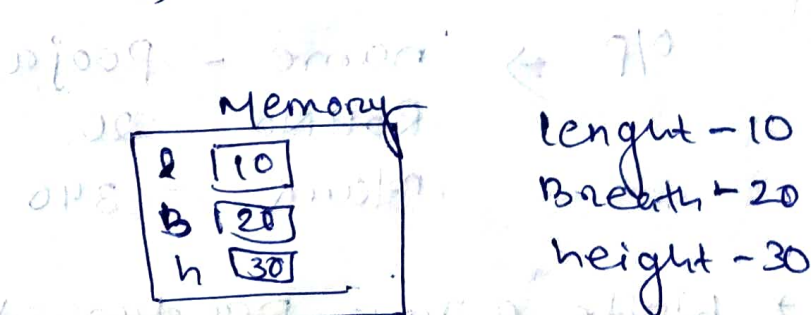 Memory
l 10
B 20
h 30
lenght - 10
Breath - 20
height - 30